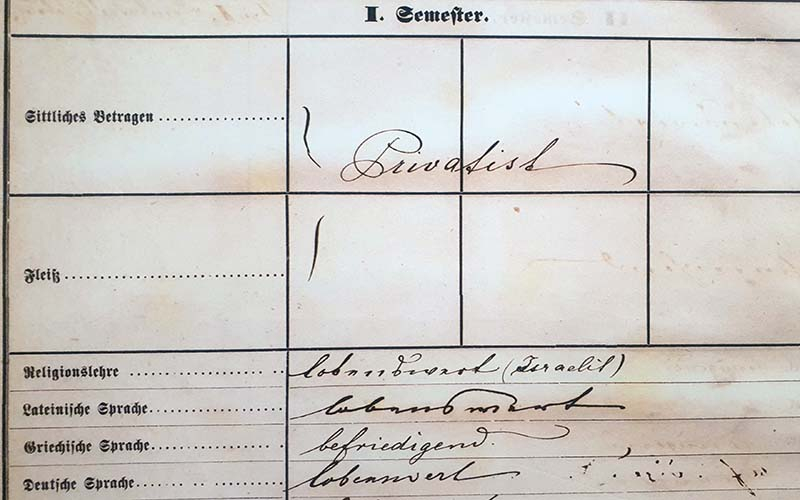 I. Semester.
Sittliches Betragen
Privatist
Fleiß
Religionslehre lobenswert (Israelit)
Lateinische Sprache lobenswert
Griechische Sprache befriedigend.
Deutsche Sprache lobenswert